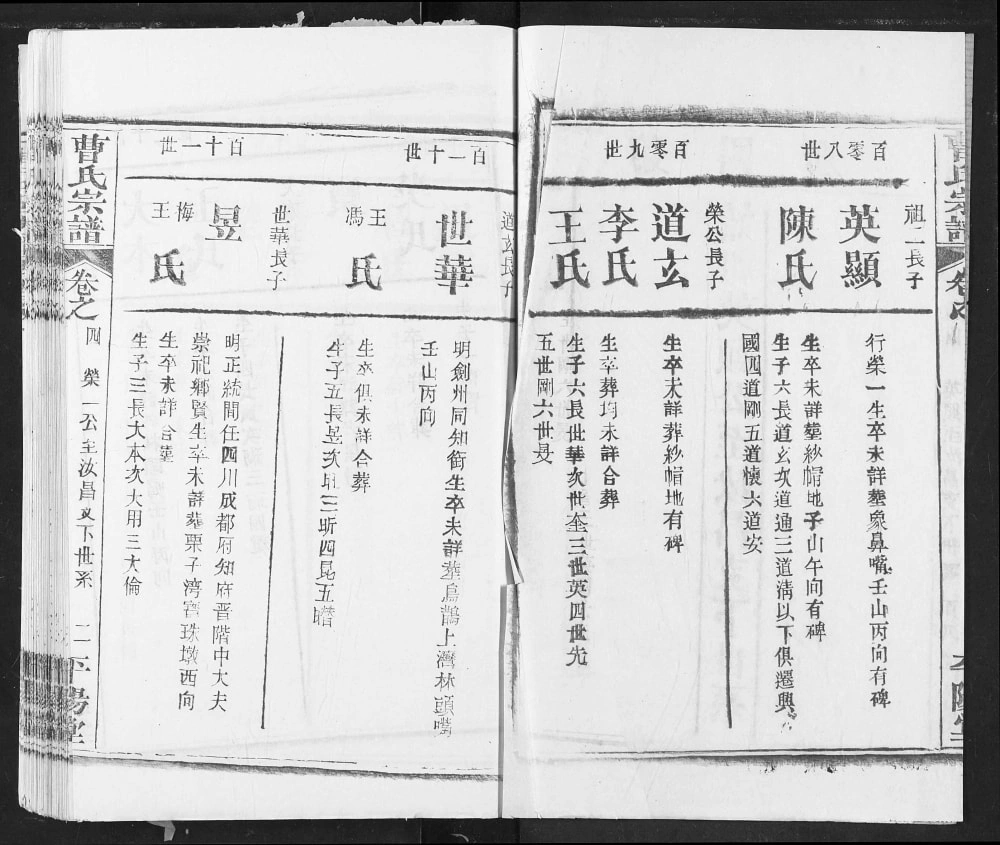 百零八世
祖二長子
英顯
行榮一生卒未詳塟象鼻嘴壬山丙向有碑
陳氏
生卒未詳塟紗帽地子山午向有碑
生子六長道玄次道通三道清以下俱遷興
國四道剛五道懷六道安
百零九世
榮公長子
道玄
生卒未詳葬紗帽地有碑
李氏
生卒葬均未詳合葬
王氏
生子六長世華次世奎三世英四世先
五世剛六世旻
百一十世
道玄長子
世華
明劍州同知銜生卒未詳塟烏鵲上灣林頭嘴
壬山丙向
王
馮
氏
生卒俱未詳合葬
生子五長昱次三昕四昆五
百十一世
世華長子
昱
明正統間任四川成都府知府晋階中大夫
崇祀鄉賢生卒未詳塟栗子湾寶珠墩西向
梅
王
氏
生卒未詳合塟
生子三長大本次大用三大倫
曹氏宗譜
卷之四
榮一公至汝昌叉下世系
二
平陽堂